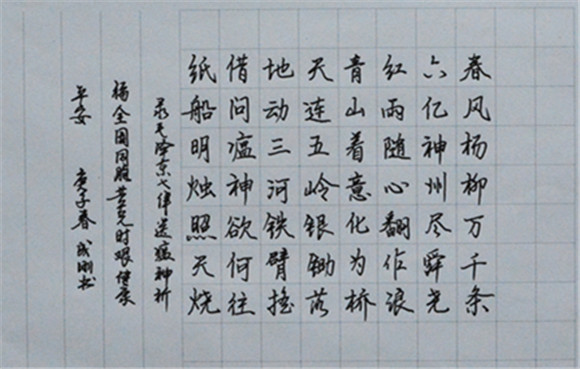 春风杨柳万千条
六亿神州尽舜尧
红雨随心翻作浪
青山着意化为桥
天连五岭银锄落
地动三河铁臂摇
借问瘟神欲何往
纸船明烛照天烧
录毛泽东七律送瘟神祈
祷全国同胞共克时艰健康
平安 庚子春 成刚书